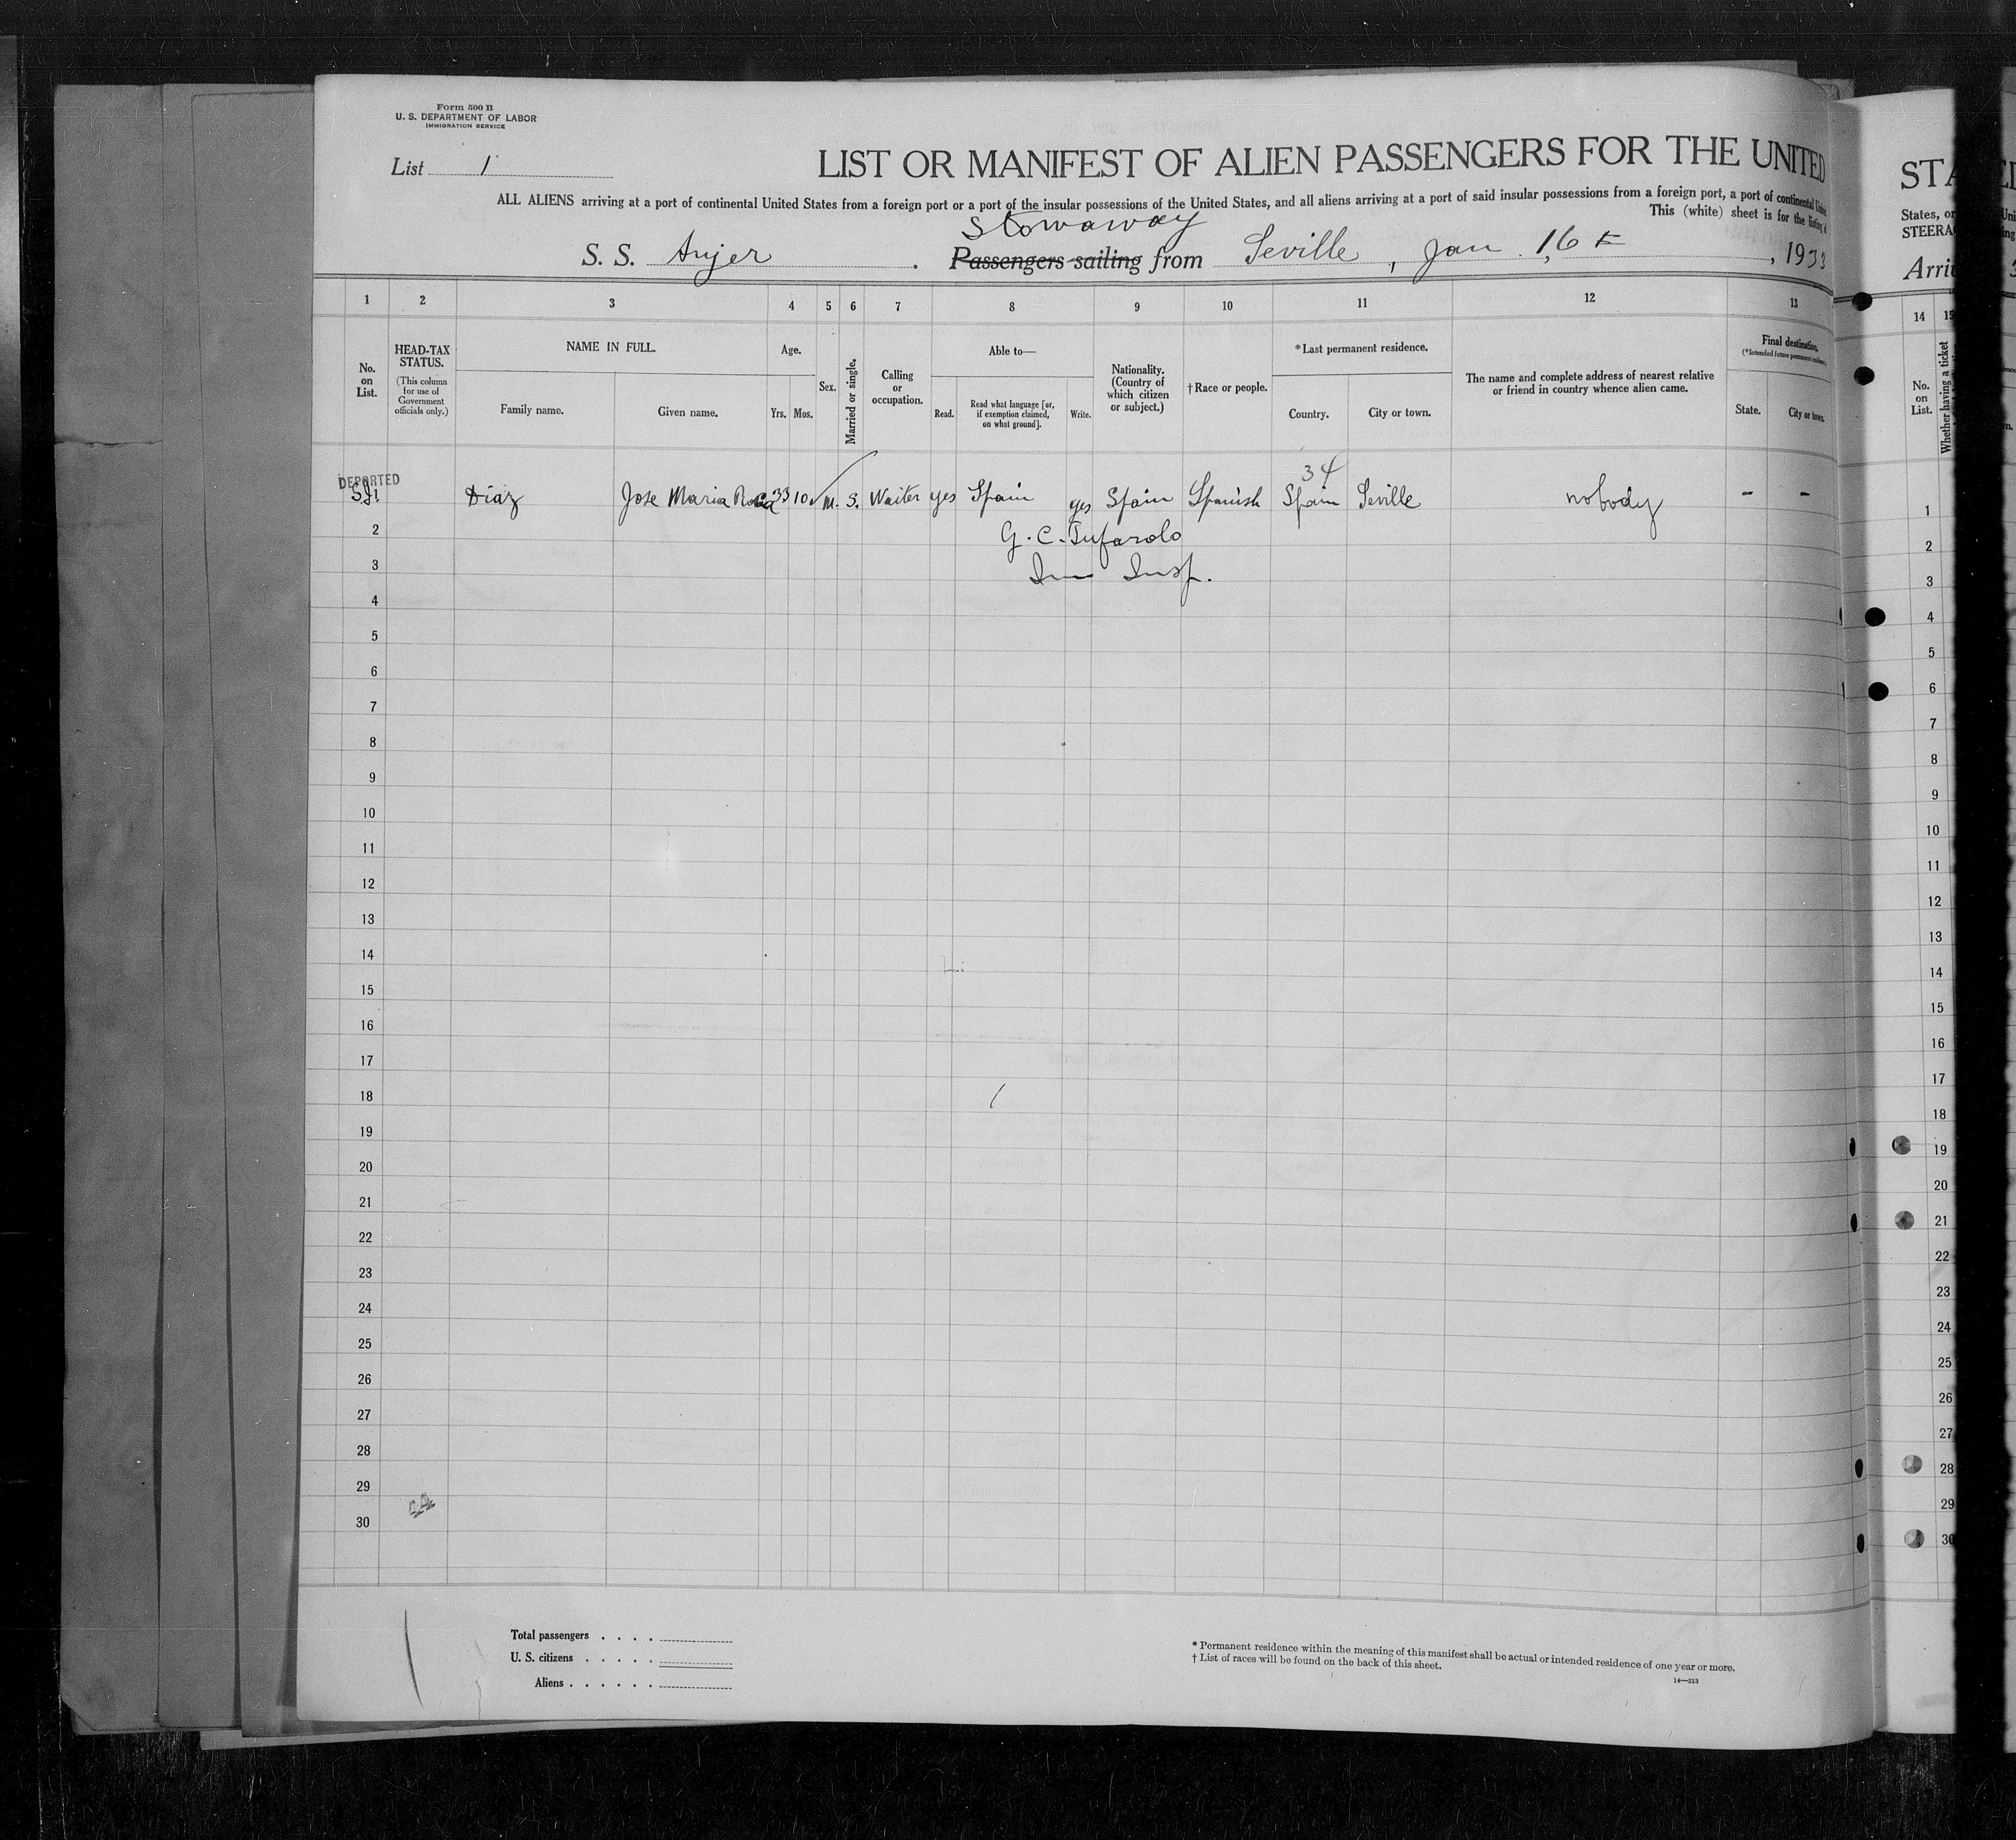 Form 500 B
U. S. DEPARTMENT OF LABOR
IMMIGRATION SERVICE
List 1
LIST OR MANIFEST OF ALIEN PASSENGERS FOR THE UNITED
ALL ALIENS arriving at a port of continental United States from a foreign port or a port of the insular possessions of the United States, and all aliens arriving at a port of said insular possessions from a foreign port, a port of continental
This (white) sheet is for the listing
Stowaway
S. S. Anjer . Passengers sailing from Seville, Jan. 16 , 1933
1 2 3 4 5 6 7 8 9 10 11 12 13
No. on List.
HEAD-TAX STATUS.
(This column for use of Government officials only.)
NAME IN FULL.
Family name. Given name.
Age.
Yrs. Mos.
Sex.
Married or single.
Calling or occupation.
Able to—
Read. Read what language [or, if exemption claimed, on what ground]. Write.
Nationality. (Country of which citizen or subject.)
†Race or people.
*Last permanent residence.
Country. City or town.
The name and complete address of nearest relative or friend in country whence alien came.
Final destination.
(*Intended future permanent residence)
State. City or town.
34
DEPORTED
1 Diaz Jose Maria 33 10 M. S. Waiter yes Spain yes Spain Spanish Spain Seville nobody - -
2 G. C. Tufarolo
3 Imm Insp.
4
5
6
7
8
9
10
11
12
13
14
15
16
17
18
19
20
21
22
23
24
25
26
27
28
29
30
Total passengers . . . .
U. S. citizens . . . . .
Aliens . . . . . .
* Permanent residence within the meaning of this manifest shall be actual or intended residence of one year or more.
† List of races will be found on the back of this sheet.
14—213
STA
States, or
STEERA
Arri
14 15
No. on List.
Whether having a ticket
1
2
3
4
5
6
7
8
9
10
11
12
13
14
15
16
17
18
19
20
21
22
23
24
25
26
27
28
29
30